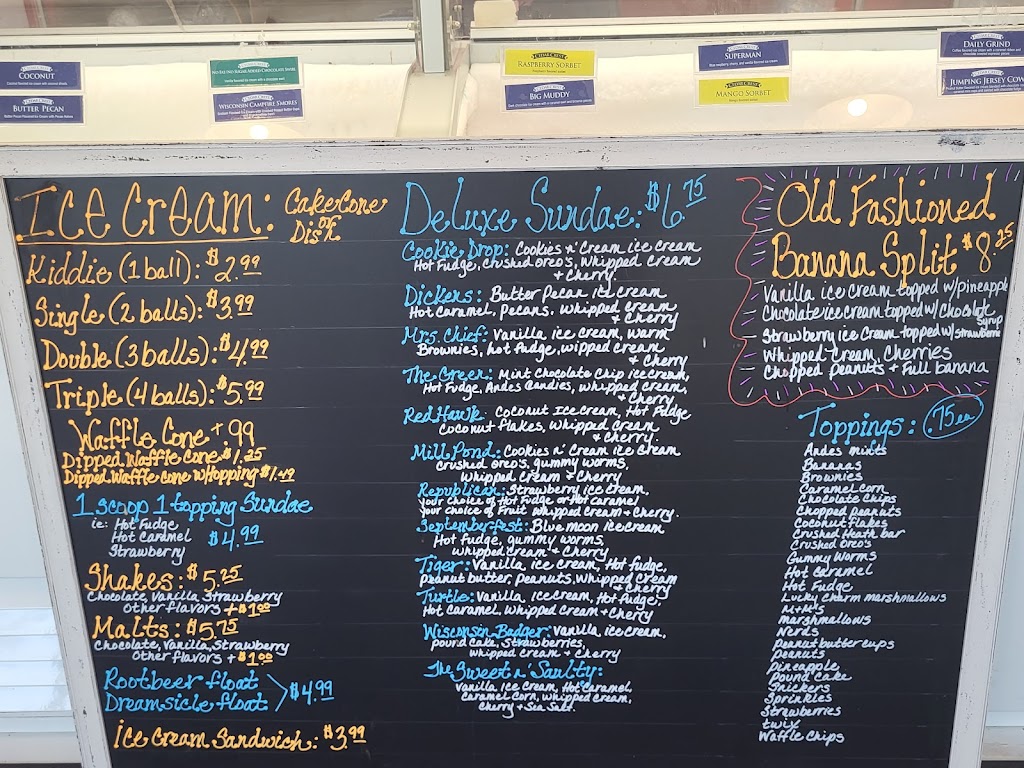 COCONUT
BUTTER PECAN
WISCONSIN CAMPFIRE S'MORES
RASPBERRY SORBET
BIG MUDDY
SUPERMAN
MANGO SORBET
DAILY GRIND
JUMPING JERSEY COW
Ice Cream: Cake Cone
or
Dish
Kiddie (1 ball): $2.99
Single (2 balls): $3.99
Double (3 balls): $4.99
Triple (4 balls): $5.99
Waffle Cone + .99
Dipped Waffle cone $1.25
Dipped Waffle cone w/topping $1.49
1 scoop 1 topping Sundae
ie: Hot Fudge
Hot Caramel
Strawberry
$4.99
Shakes: $5.25
Chocolate, Vanilla, Strawberry
Other flavors + $1.00
Malts: $5.75
Chocolate, Vanilla, Strawberry
Other flavors + $1.00
Rootbeer float
Dreamsicle float
$4.99
Ice Cream Sandwich: $3.99
Deluxe Sundae: $6.75
Cookie Drop: Cookies n' Cream ice cream
Hot Fudge, Crushed Oreo's, Whipped Cream
+ Cherry.
Dickens: Butter Pecan ice cream,
Hot Caramel, Pecans, Whipped Cream
& Cherry
Mrs. Chief: Vanilla ice cream, warm
Brownies, hot fudge, wipped cream
& Cherry
The Green: Mint Chocolate Chip ice cream,
Hot Fudge, Andes Candies, whipped cream,
& Cherry
Red Hawk: Coconut Ice cream, Hot Fudge
Coconut flakes, Whipped Cream
& Cherry.
Mill Pond: Cookies n' Cream ice cream
crushed oreo's, gummy worms,
whipped cream & Cherry
Republican: Strawberry ice cream,
your choice of Hot Fudge or Hot Caramel
your choice of Fruit whipped cream & Cherry.
Septemberfest: Blue moon ice cream
Hot fudge, gummy worms,
whipped cream & Cherry
Tiger: Vanilla ice cream, Hot fudge,
peanut butter, peanuts, whipped cream
& cherry
Turtle: Vanilla Ice cream, Hot Fudge,
Hot Caramel, Whipped Cream & Cherry
Wisconsin Badger: Vanilla ice cream,
pound cake, strawberries,
whipped cream & Cherry
The Sweet n' Saulty:
Vanilla Ice Cream, Hot Caramel,
Caramel Corn, whipped cream,
Cherry & Sea Salt.
Old Fashioned
Banana Split $8.25
Vanilla ice cream topped w/pineapple
Chocolate ice cream topped w/chocolate
syrup
Strawberry ice cream topped w/strawberries
Whipped Cream, Cherries
Chopped peanuts + Full banana
Toppings: .75 ea
Andes mints
Bananas
Brownies
Caramel Corn
Chocolate Chips
Chopped peanuts
Coconut flakes
Crushed Heath bar
Crushed Oreo's
Gummy Worms
Hot Caramel
Hot Fudge
Lucky Charm marshmallows
M+M's
marshmallows
Nerds
Peanut butter cups
Peanuts
Pineapple
Pound Cake
Snickers
Sprinkles
Strawberries
twix
Waffle Chips